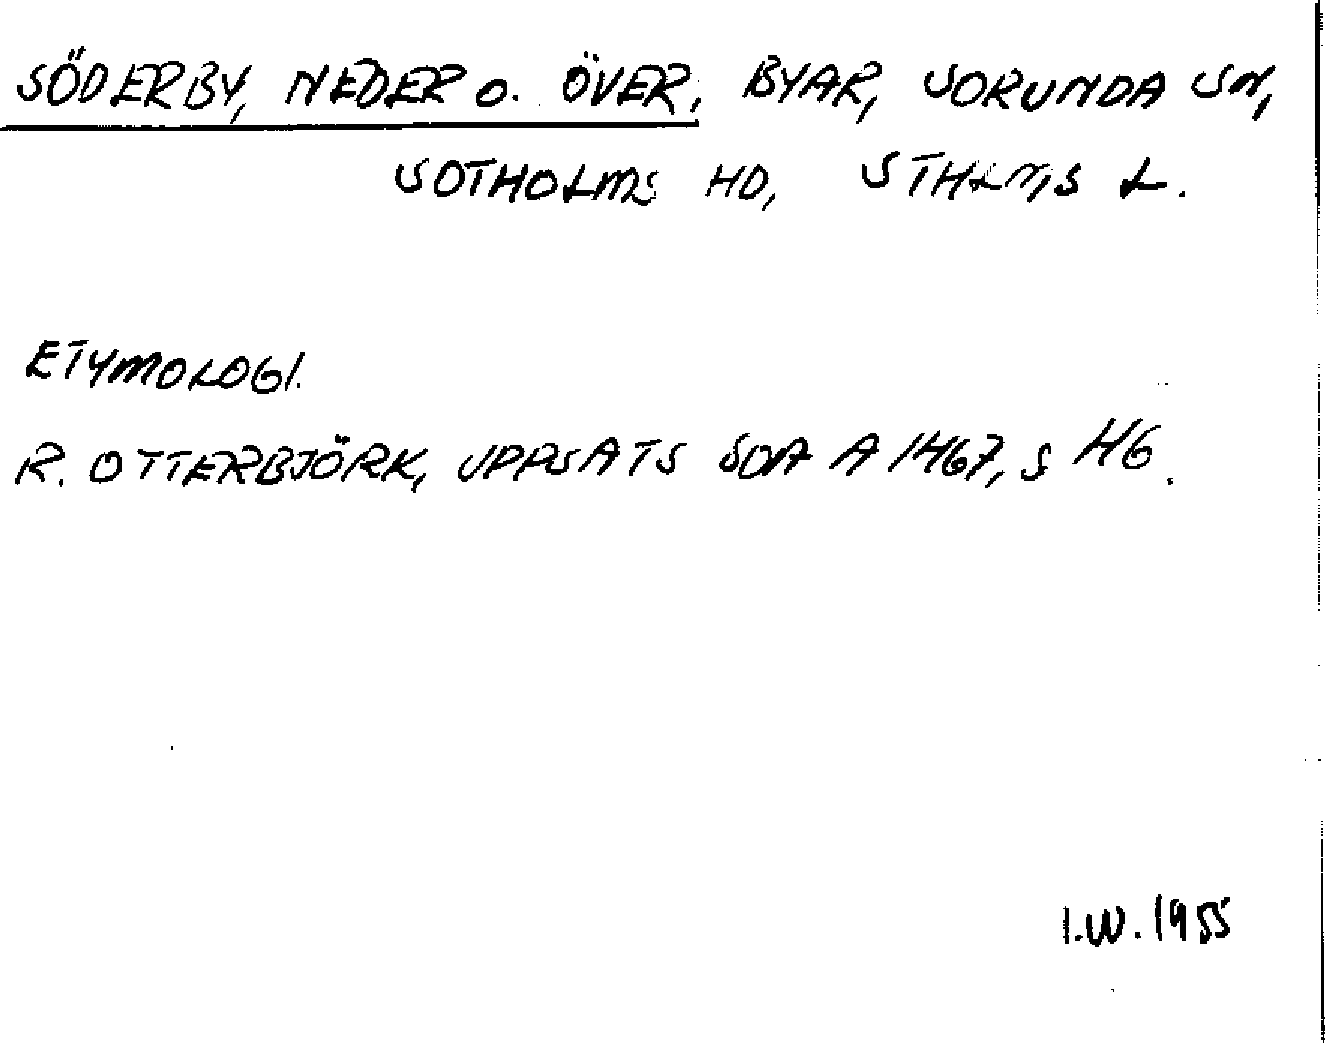 SÖDERBY, NEDER O. ÖVER, BYAR, SORUNDA SN,
SOTHOLMS HD, STHLMS L.
ETYMOLOGI.
R. OTTERBJÖRK, UPPSATS SOA A 1467, S 46.
I.W. 1955